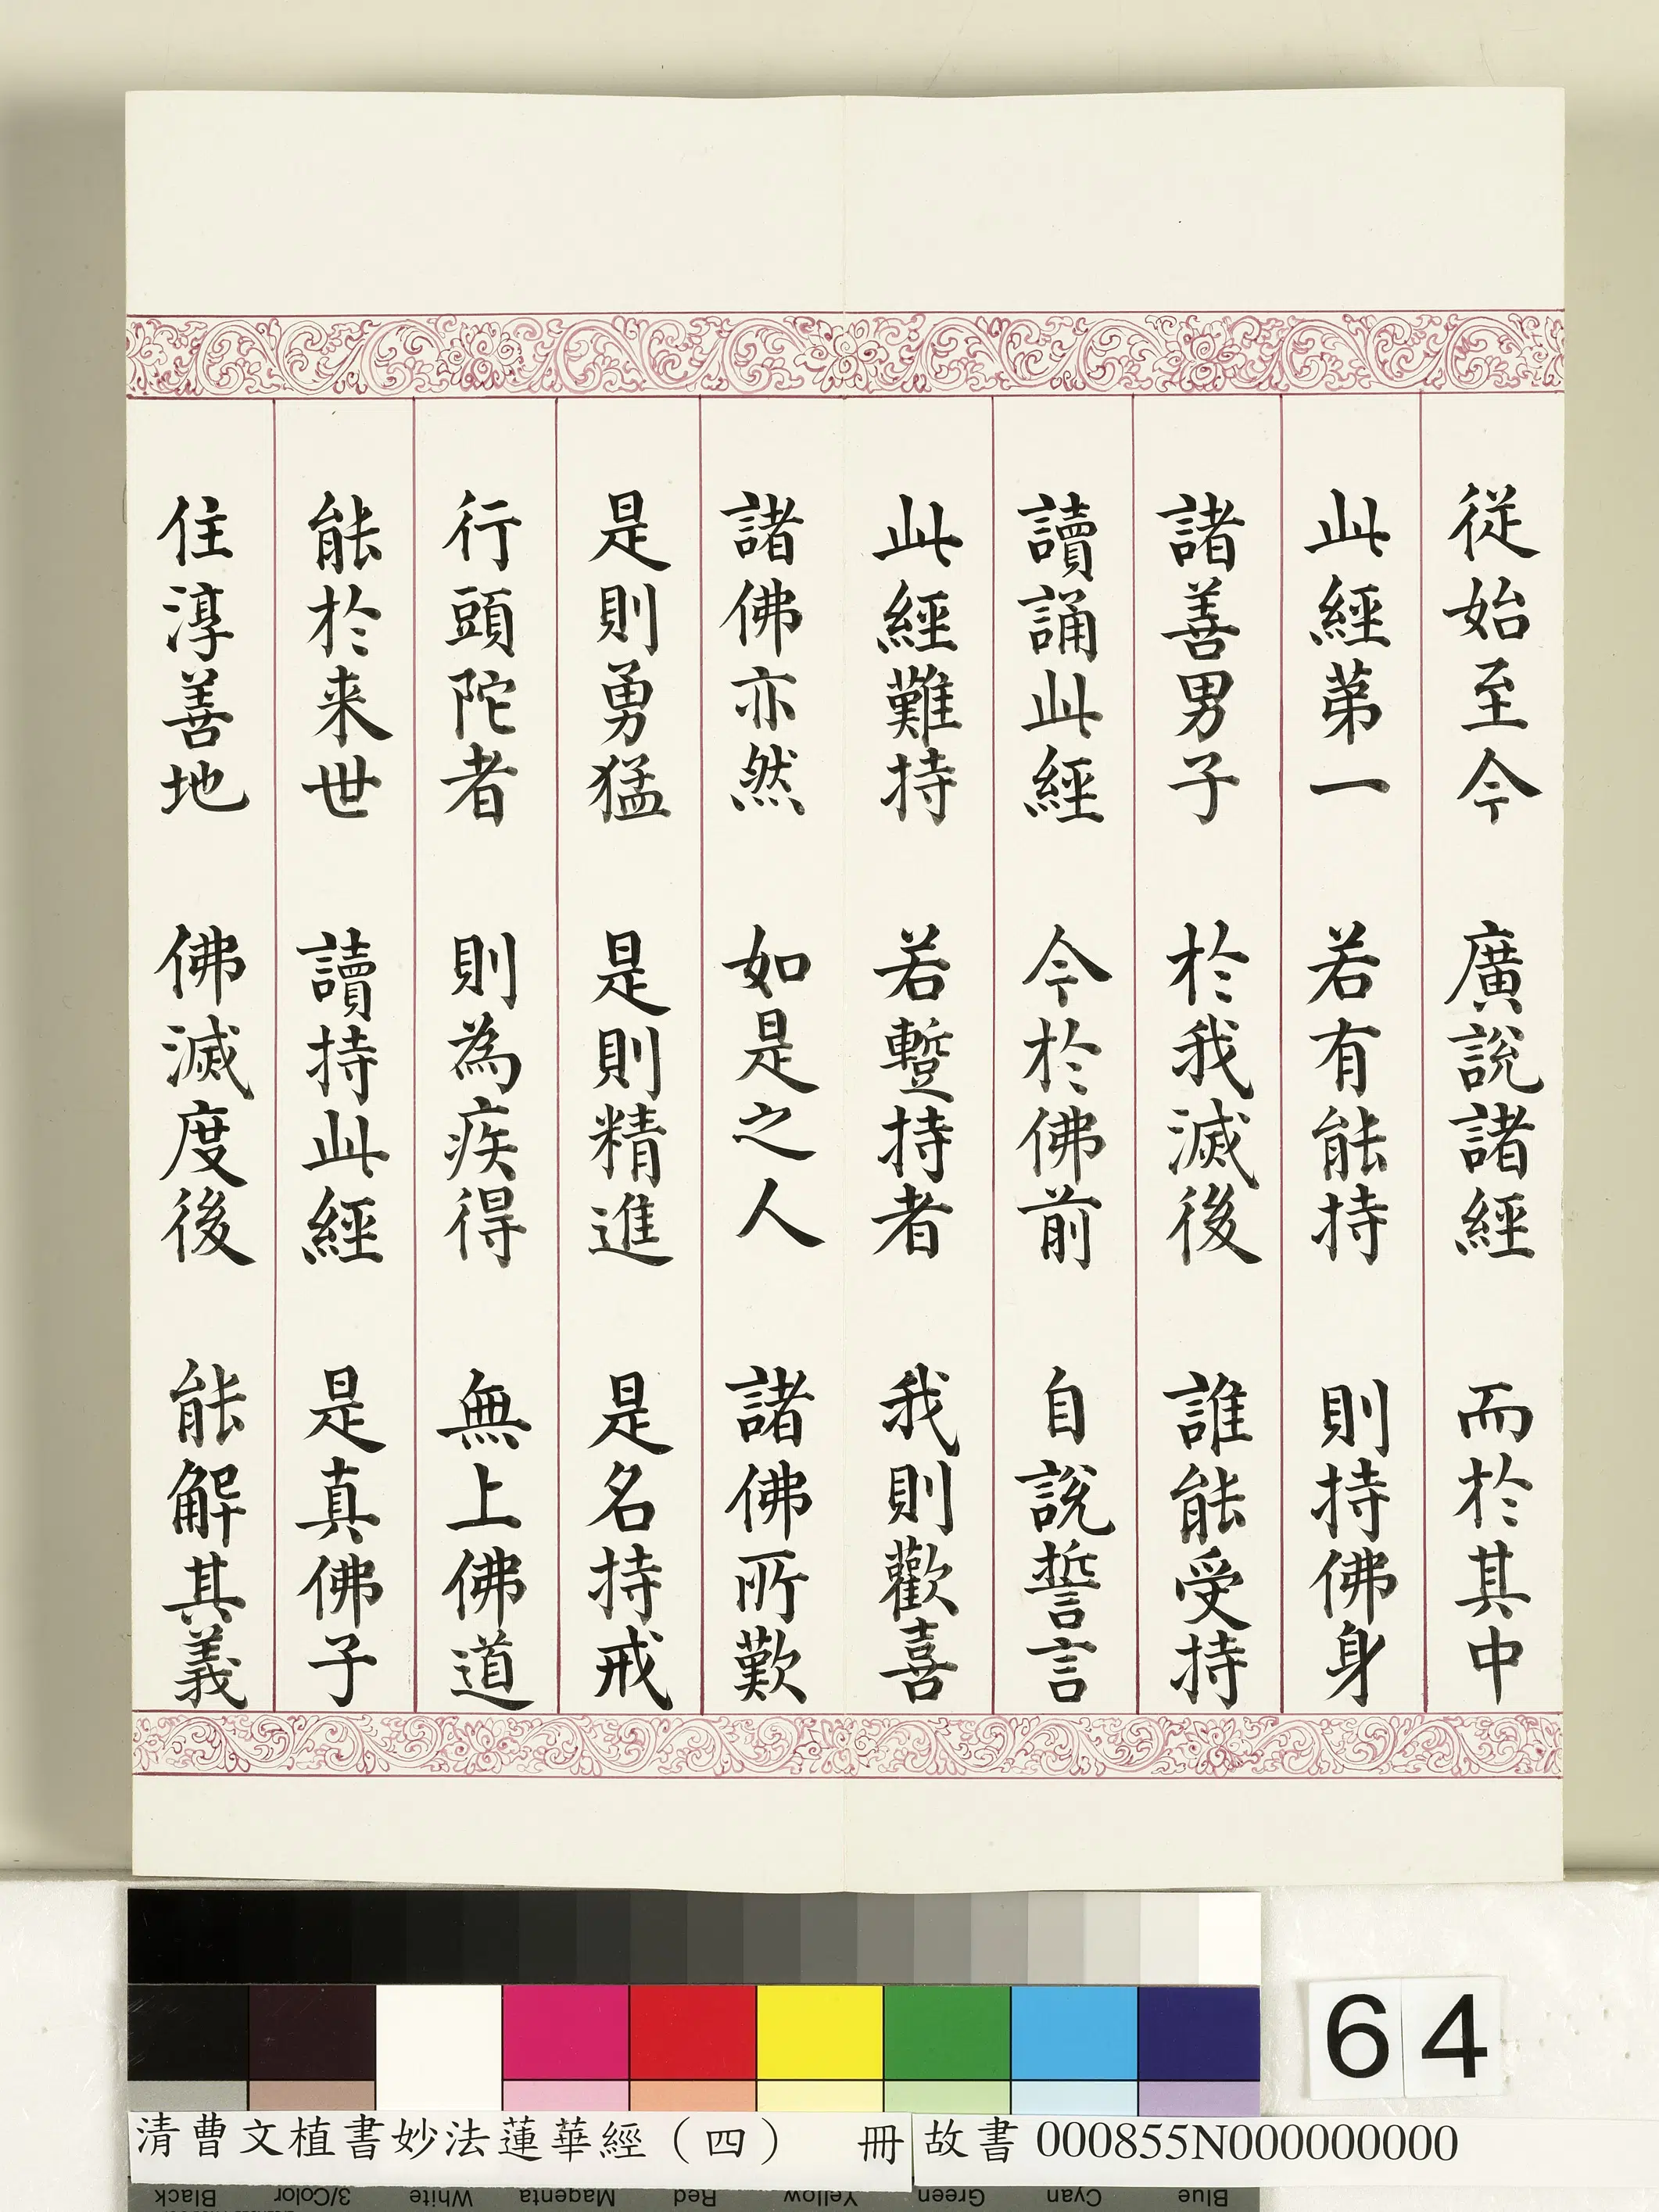 從始至今 廣說諸經 而於其中
此經第一 若有能持 則持佛身
諸善男子 於我滅後 誰能受持
讀誦此經 今於佛前 自說誓言
此經難持 若蹔持者 我則歡喜
諸佛亦然 如是之人 諸佛所歎
是則勇猛 是則精進 是名持戒
行頭陀者 則為疾得 無上佛道
能於来世 讀持此經 是真佛子
住淳善地 佛滅度後 能解其義
64
清曹文植書妙法蓮華經（四） 冊 故書 000855N000000000
Black 3/Color White Magenta Red Yellow Green Cyan Blue